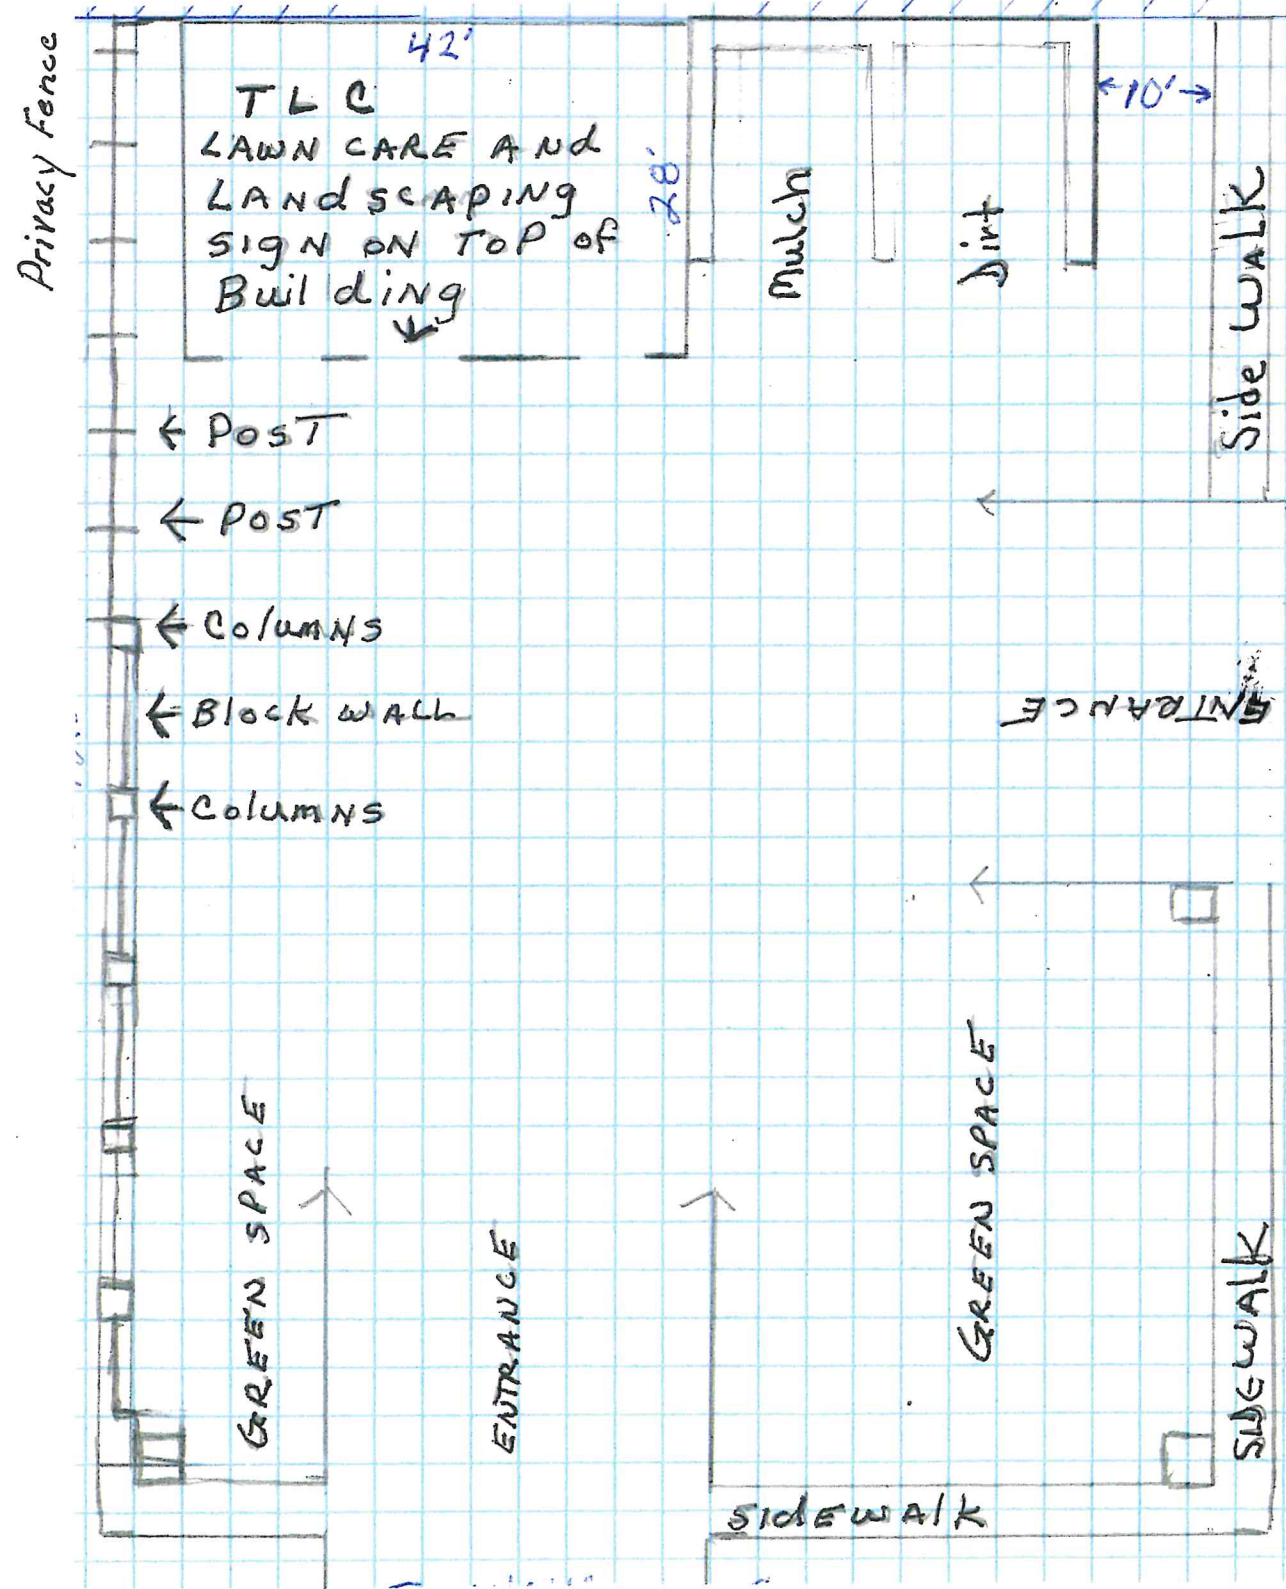 Privacy Fence
42'
TLC
LAWN CARE ANd
LANdSCAPiNg
SigN oN ToP of
BuildiNg
28'
Mulch
Dirt
10'
Side WALK
PosT
PosT
ColumNs
Block WALL
ColumNs
ENTRANCE
GREEN SPACE
ENTRANCE
GREEN SPACE
SidEWAlk
SidEWAlk